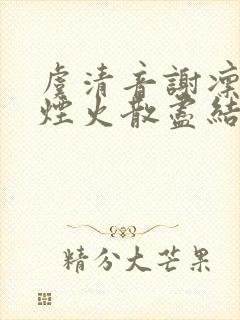 虞清音謝凜
煙火散盡結
精分大芒果